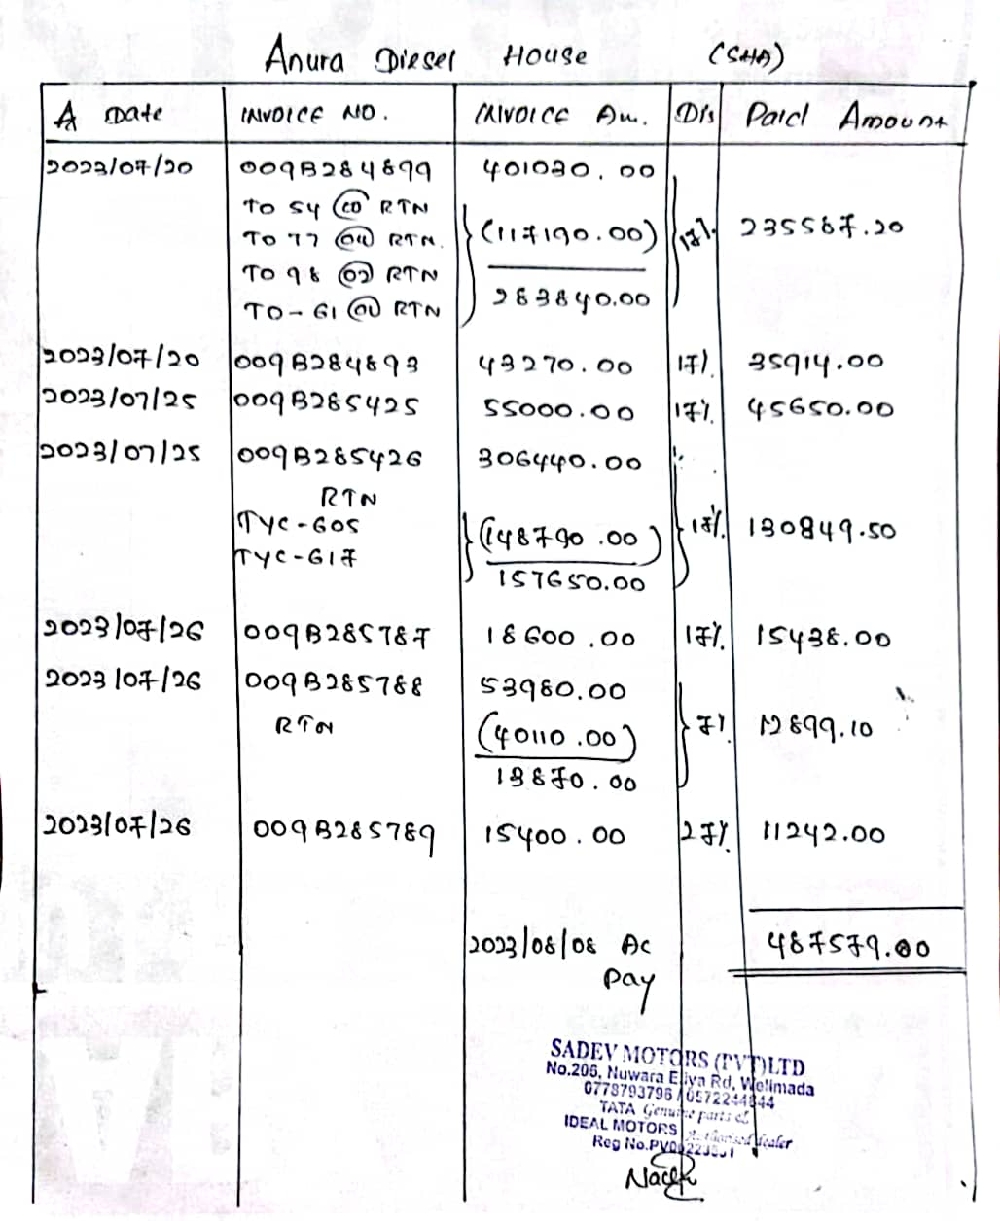 Anura Diesel House (SHA)
A Date INVOICE NO. INVOICE Am. Dis Paid Amount
2023/07/20 009B284899 401030.00
TO 54 RTN
TO 77 04 RTN (117190.00) 17% 235587.20
TO 98 02 RTN
283840.00
TO-61 RTN
2023/07/20 009B284893 43270.00 17% 35914.00
2023/07/25 009B285425 55000.00 17% 45650.00
2023/07/25 009B285426 306440.00
RTN
TYC-605 (148790.00) 17% 130849.50
TYC-617
157650.00
2023/07/26 009B285787 18600.00 17% 15438.00
2023/07/26 009B285788 53980.00
RTN (40110.00) 7% 12899.10
13870.00
2023/07/26 009B285789 15400.00 27% 11242.00
2023/08/08 Ac 487579.00
Pay
SADEV MOTORS (PVT)LTD
No.205, Nuwara Eliya Rd, Welimada
0778793796 / 0572244844
TATA Genuine parts &
IDEAL MOTORS dealer
Reg No.